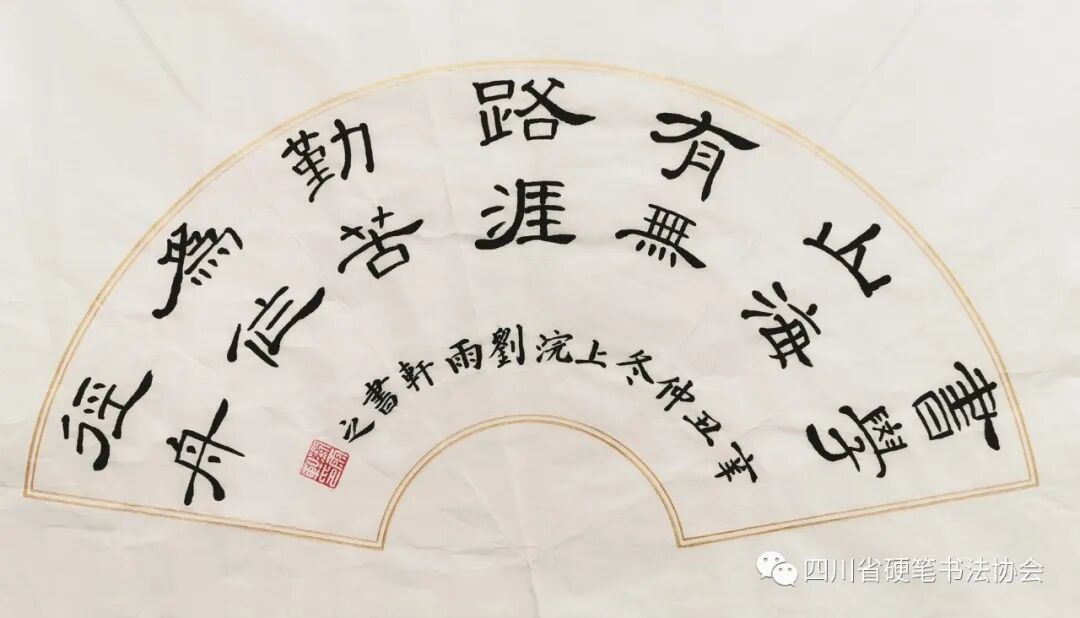 書山有路勤為徑
學海無涯苦作舟
辛丑仲冬上浣劉雨軒書之
四川省硬笔书法协会